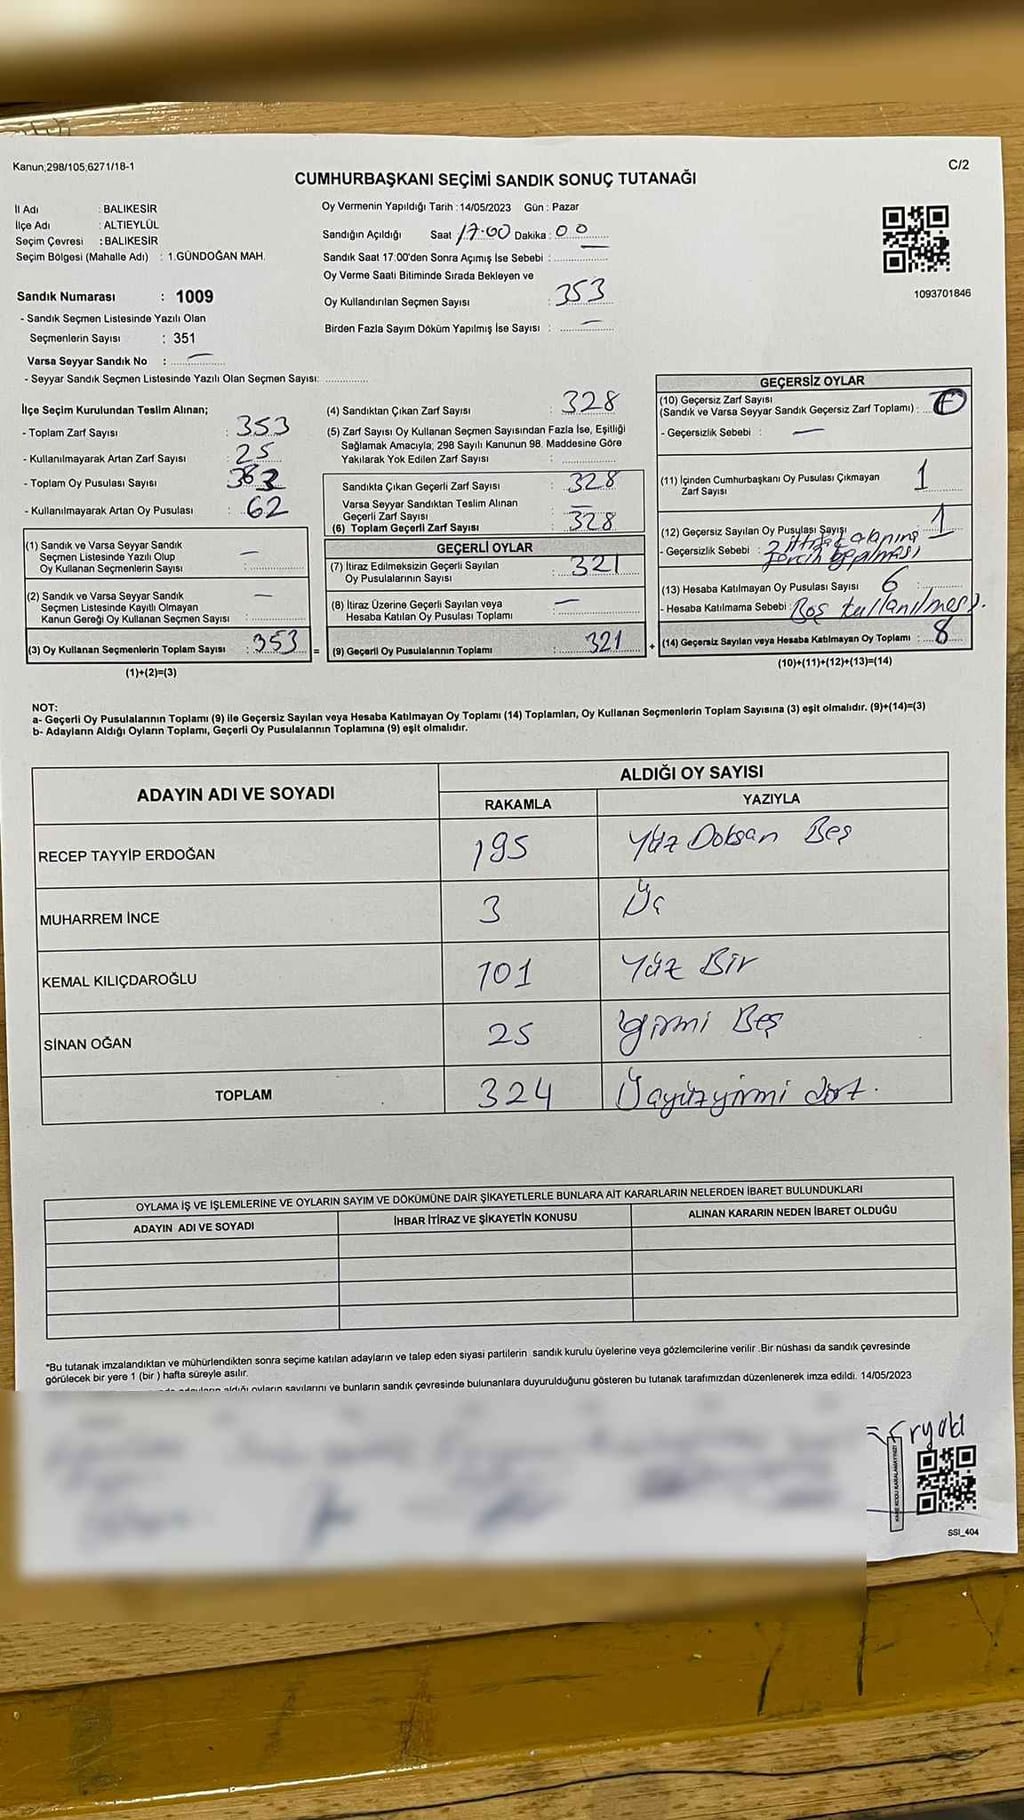 Kanun;298/105,6271/18-1
C/2
CUMHURBAŞKANI SEÇİMİ SANDIK SONUÇ TUTANAĞI
İl Adı : BALIKESİR
İlçe Adı : ALTIEYLÜL
Seçim Çevresi : BALIKESİR
Seçim Bölgesi (Mahalle Adı) : 1.GÜNDOĞAN MAH.
Sandık Numarası : 1009
- Sandık Seçmen Listesinde Yazılı Olan
Seçmenlerin Sayısı : 351
Varsa Seyyar Sandık No : —
- Seyyar Sandık Seçmen Listesinde Yazılı Olan Seçmen Sayısı:
Oy Vermenin Yapıldığı Tarih : 14/05/2023 Gün : Pazar
Sandığın Açıldığı Saat 17.00 Dakika : 00
Sandık Saat 17:00'den Sonra Açımış İse Sebebi : —
Oy Verme Saati Bitiminde Sırada Bekleyen ve
Oy Kullandırılan Seçmen Sayısı : 353
Birden Fazla Sayım Döküm Yapılmış İse Sayısı : —
1093701846
İlçe Seçim Kurulundan Teslim Alınan;
- Toplam Zarf Sayısı : 353
- Kullanılmayarak Artan Zarf Sayısı : 25
- Toplam Oy Pusulası Sayısı :
- Kullanılmayarak Artan Oy Pusulası : 62
(1) Sandık ve Varsa Seyyar Sandık
Seçmen Listesinde Yazılı Olup
Oy Kullanan Seçmenlerin Sayısı : —
(2) Sandık ve Varsa Seyyar Sandık
Seçmen Listesinde Kayıtlı Olmayan
Kanun Gereği Oy Kullanan Seçmen Sayısı : —
(3) Oy Kullanan Seçmenlerin Toplam Sayısı : 353 =
(1)+(2)=(3)
(4) Sandıktan Çıkan Zarf Sayısı : 328
(5) Zarf Sayısı Oy Kullanan Seçmen Sayısından Fazla İse, Eşitliği
Sağlamak Amacıyla; 298 Sayılı Kanunun 98. Maddesine Göre
Yakılarak Yok Edilen Zarf Sayısı :
Sandıkta Çıkan Geçerli Zarf Sayısı : 328
Varsa Seyyar Sandıktan Teslim Alınan
Geçerli Zarf Sayısı : —
(6) Toplam Geçerli Zarf Sayısı : 328
GEÇERLİ OYLAR
(7) İtiraz Edilmeksizin Geçerli Sayılan
Oy Pusulalarının Sayısı : 321
(8) İtiraz Üzerine Geçerli Sayılan veya
Hesaba Katılan Oy Pusulası Toplamı : —
(9) Geçerli Oy Pusulalarının Toplamı : 321 +
GEÇERSİZ OYLAR
(10) Geçersiz Zarf Sayısı
(Sandık ve Varsa Seyyar Sandık Geçersiz Zarf Toplamı) :
- Geçersizlik Sebebi : —
(11) İçinden Cumhurbaşkanı Oy Pusulası Çıkmayan
Zarf Sayısı : 1
(12) Geçersiz Sayılan Oy Pusulası Sayısı : 1
- Geçersizlik Sebebi : 2 ittifak alanına
tercih yapılması
(13) Hesaba Katılmayan Oy Pusulası Sayısı : 6
- Hesaba Katılmama Sebebi : Boş kullanılmesi.
(14) Geçersiz Sayılan veya Hesaba Katılmayan Oy Toplamı : 8
(10)+(11)+(12)+(13)=(14)
NOT:
a- Geçerli Oy Pusulalarının Toplamı (9) ile Geçersiz Sayılan veya Hesaba Katılmayan Oy Toplamı (14) Toplamları, Oy Kullanan Seçmenlerin Toplam Sayısına (3) eşit olmalıdır. (9)+(14)=(3)
b- Adayların Aldığı Oyların Toplamı, Geçerli Oy Pusulalarının Toplamına (9) eşit olmalıdır.
ADAYIN ADI VE SOYADI ALDIĞI OY SAYISI
RAKAMLA YAZIYLA
RECEP TAYYİP ERDOĞAN 195 Yüz Doksan Beş
MUHARREM İNCE 3 Üç
KEMAL KILIÇDAROĞLU 101 Yüz Bir
SİNAN OĞAN 25 Yirmi Beş
TOPLAM 324 Üçyüzyirmi dört.
OYLAMA İŞ VE İŞLEMLERİNE VE OYLARIN SAYIM VE DÖKÜMÜNE DAİR ŞİKAYETLERLE BUNLARA AİT KARARLARIN NELERDEN İBARET BULUNDUKLARI
ADAYIN ADI VE SOYADI İHBAR İTİRAZ VE ŞİKAYETİN KONUSU ALINAN KARARIN NEDEN İBARET OLDUĞU
*Bu tutanak imzalandıktan ve mühürlendikten sonra seçime katılan adayların ve talep eden siyasi partilerin sandık kurulu üyelerine veya gözlemcilerine verilir .Bir nüshası da sandık çevresinde
görülecek bir yere 1 (bir ) hafta süreyle asılır.
aldığı oyların sayılarını ve bunların sandık çevresinde bulunanlara duyurulduğunu gösteren bu tutanak tarafımızdan düzenlenerek imza edildi. 14/05/2023
KARE KODU KARALAMAYINIZ!
SSI_404